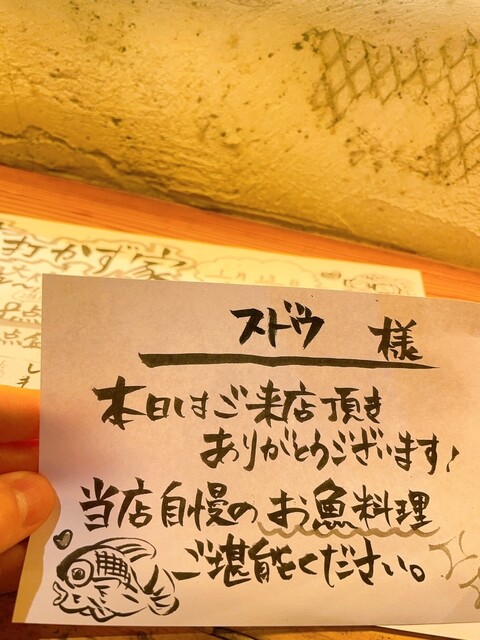 打かず家
ストウ 様
本日はご来店頂き
ありがとうございます!
当店自慢のお魚料理
ご堪能ください。